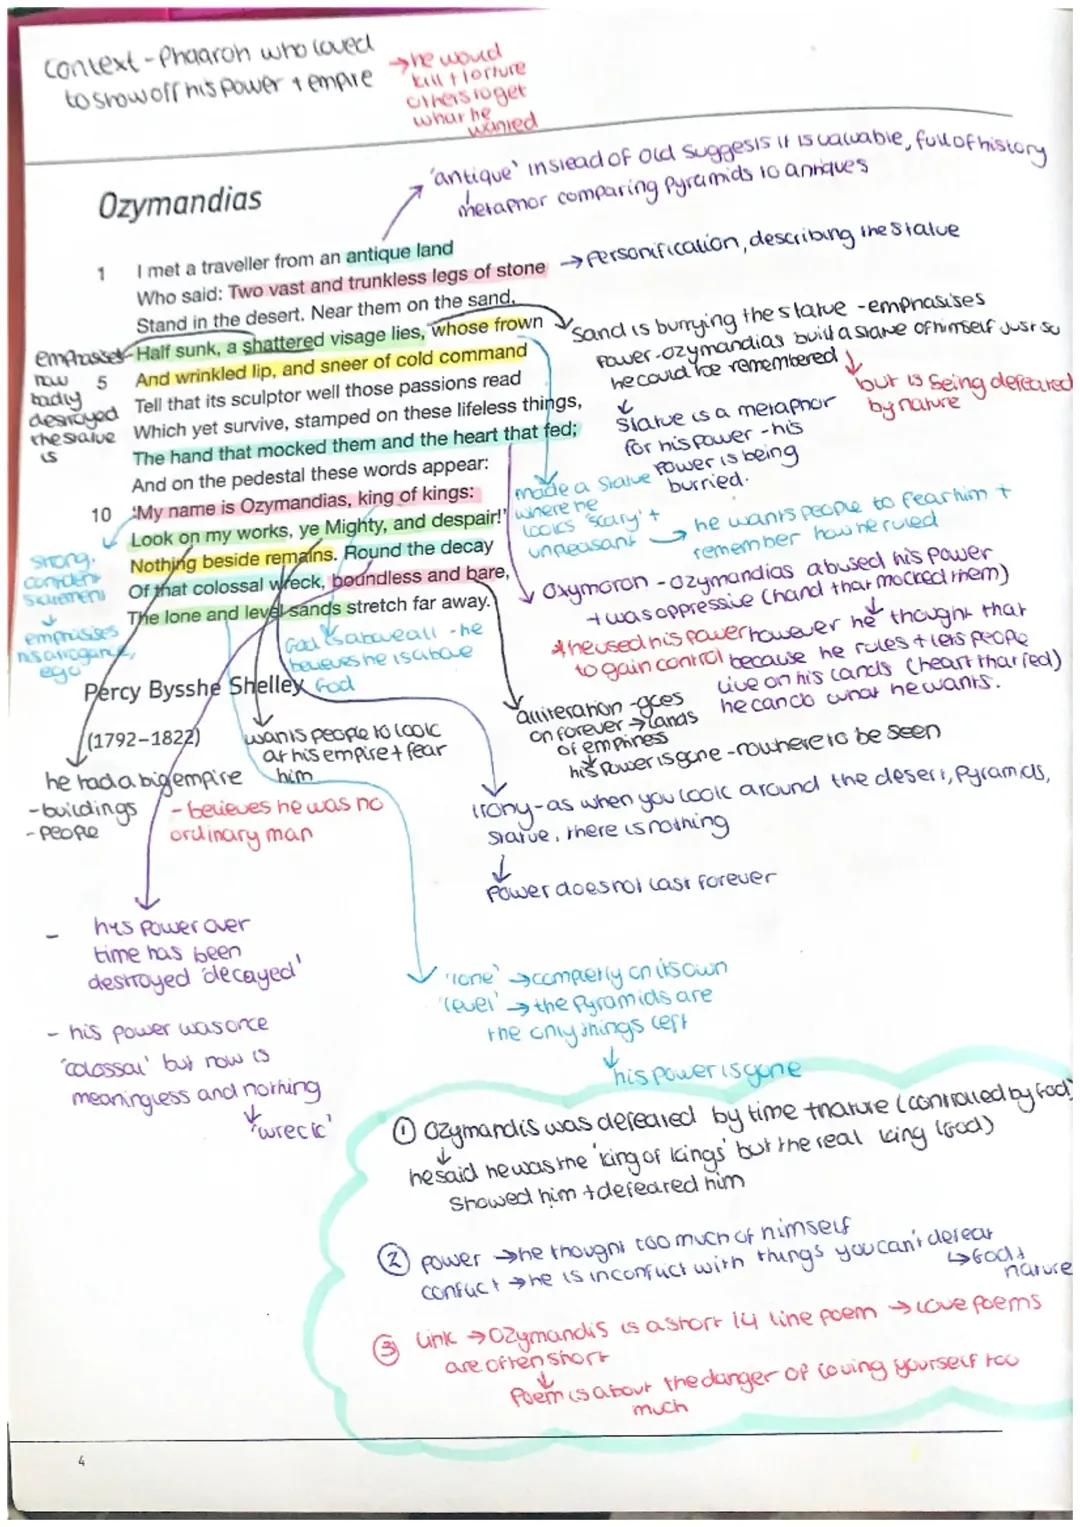 Context - Phaaroh who loved
to show off his power + empire
→ he would
kill + torture
others to get
what he
wanted
'antique' instead of old suggests it is valuable, full of history
metaphor comparing pyramids to antiques
Ozymandias
1 I met a traveller from an antique land
Who said: Two vast and trunkless legs of stone
→ Personification, describing the statue
Stand in the desert. Near them on the sand,
Half sunk, a shattered visage lies, whose frown
5 And wrinkled lip, and sneer of cold command
Tell that its sculptor well those passions read
Which yet survive, stamped on these lifeless things,
The hand that mocked them and the heart that fed;
And on the pedestal these words appear:
10 'My name is Ozymandias, king of kings:
Look on my works, ye Mighty, and despair!'
Nothing beside remains. Round the decay
Of that colossal wreck, boundless and bare,
The lone and level sands stretch far away.
Percy Bysshe Shelley
(1792–1822)
emphasises
how
badly
destroyed
the statue
is
Sand is burrying the statue - emphasises
power - ozymandias built a statue of himself just so
he could be remembered
but is being defeated
by nature
Statue is a metaphor
for his power - his
power is being
burried.
made a statue
where he
looks 'scary' +
unpleasant
→ he wants people to fear him +
remember how he ruled
Oxymoron - ozymandias abused his power
+ was oppressive (hand that mocked them)
* he used his power
to gain control
however he thought that
because he rules + lets people
live on his lands (heart that fed)
he can do what he wants.
strong,
confident
statement
emphasises
his arrogance,
ego
God is above all - he
believes he is above
God
wants people to look
at his empire + fear
him
- believes he was no
ordinary man
he had a big empire
- buildings
- people
alliteration - goes
on forever → lands
of emptiness
his power is gone - nowhere to be seen
irony - as when you look around the desert, pyramids,
statue, there is nothing
Power does not last forever
- his power over
time has been
destroyed 'decayed'
- his power was once
'colossal' but now is
meaningless and nothing
'wreck'
'lone' → completly on its own
'level' → the pyramids are
the only things left
his power is gone
① Ozymandis was defeated by time + nature (controlled by God)
he said he was the 'king of kings' but the real king (God)
showed him + defeated him
② power → he thought too much of himself
conflict → he is in conflict with things you can't defeat
↳ God +
nature
③ Link → Ozymandis is a short 14 line poem → love poems
are often short
Poem is about the danger of loving yourself too
much
4